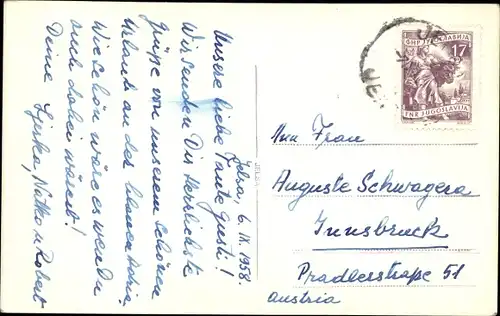 Jelsa, 6. IX. 1958.
Unsere liebe Tante Gusti!
Wir senden Dir Herrlichste
Grüße von unserem schönen
Urlaub an der blauen Adria.
Wie schön wäre es wenn du
auch dabei wärest!
Deine Ljerka, Vlatko u. Robert
JELSA
ФНР ЈУГОСЛАВИЈА
17
FNR JUGOSLAVIJA
Frau
Auguste Schwagera
Innsbruck
Pradlerstraße 51
Austria